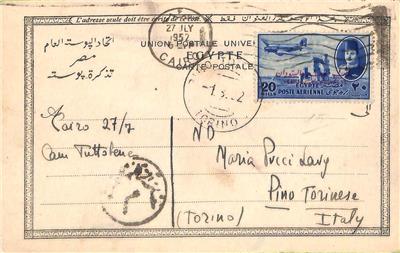 L'adresse seule doit être écrite de ce côté
27 JLY
1952
CAIRO
اتحاد البوستة العام
مصر
تذكرة بوستة
UNION POSTALE UNIVERSELLE
EGYPTE
CARTE POSTALE
TORINO
20
EGYPTE
POSTE AERIENNE
٢٠
Cairo 27/7
ND
Maria Pucci
Pino Torinese
(Torino)
Italy